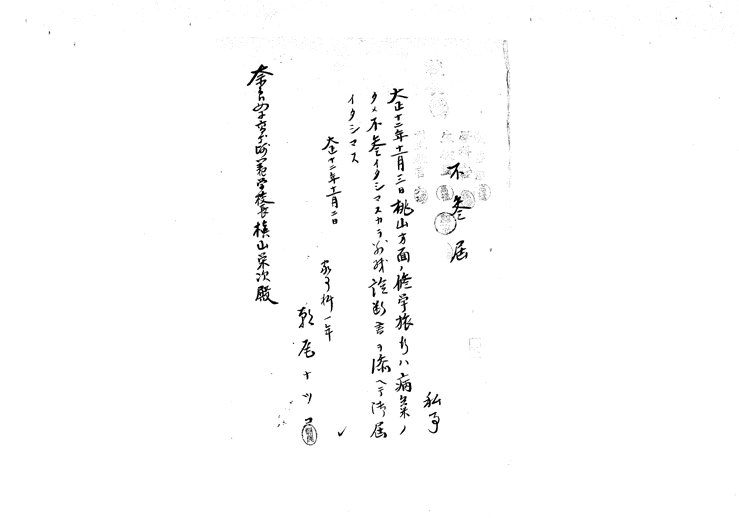 不参届
私事
大正十二年十一月三日桃山方面ノ修学旅行ハ病気ノ
タメ不参イタシマスカラ別残診断書ヲ添ヘテ御届
イタシマス
大正十二年十一月二日
家事科一年
奈良女子高等師範学校長槇山栄次殿